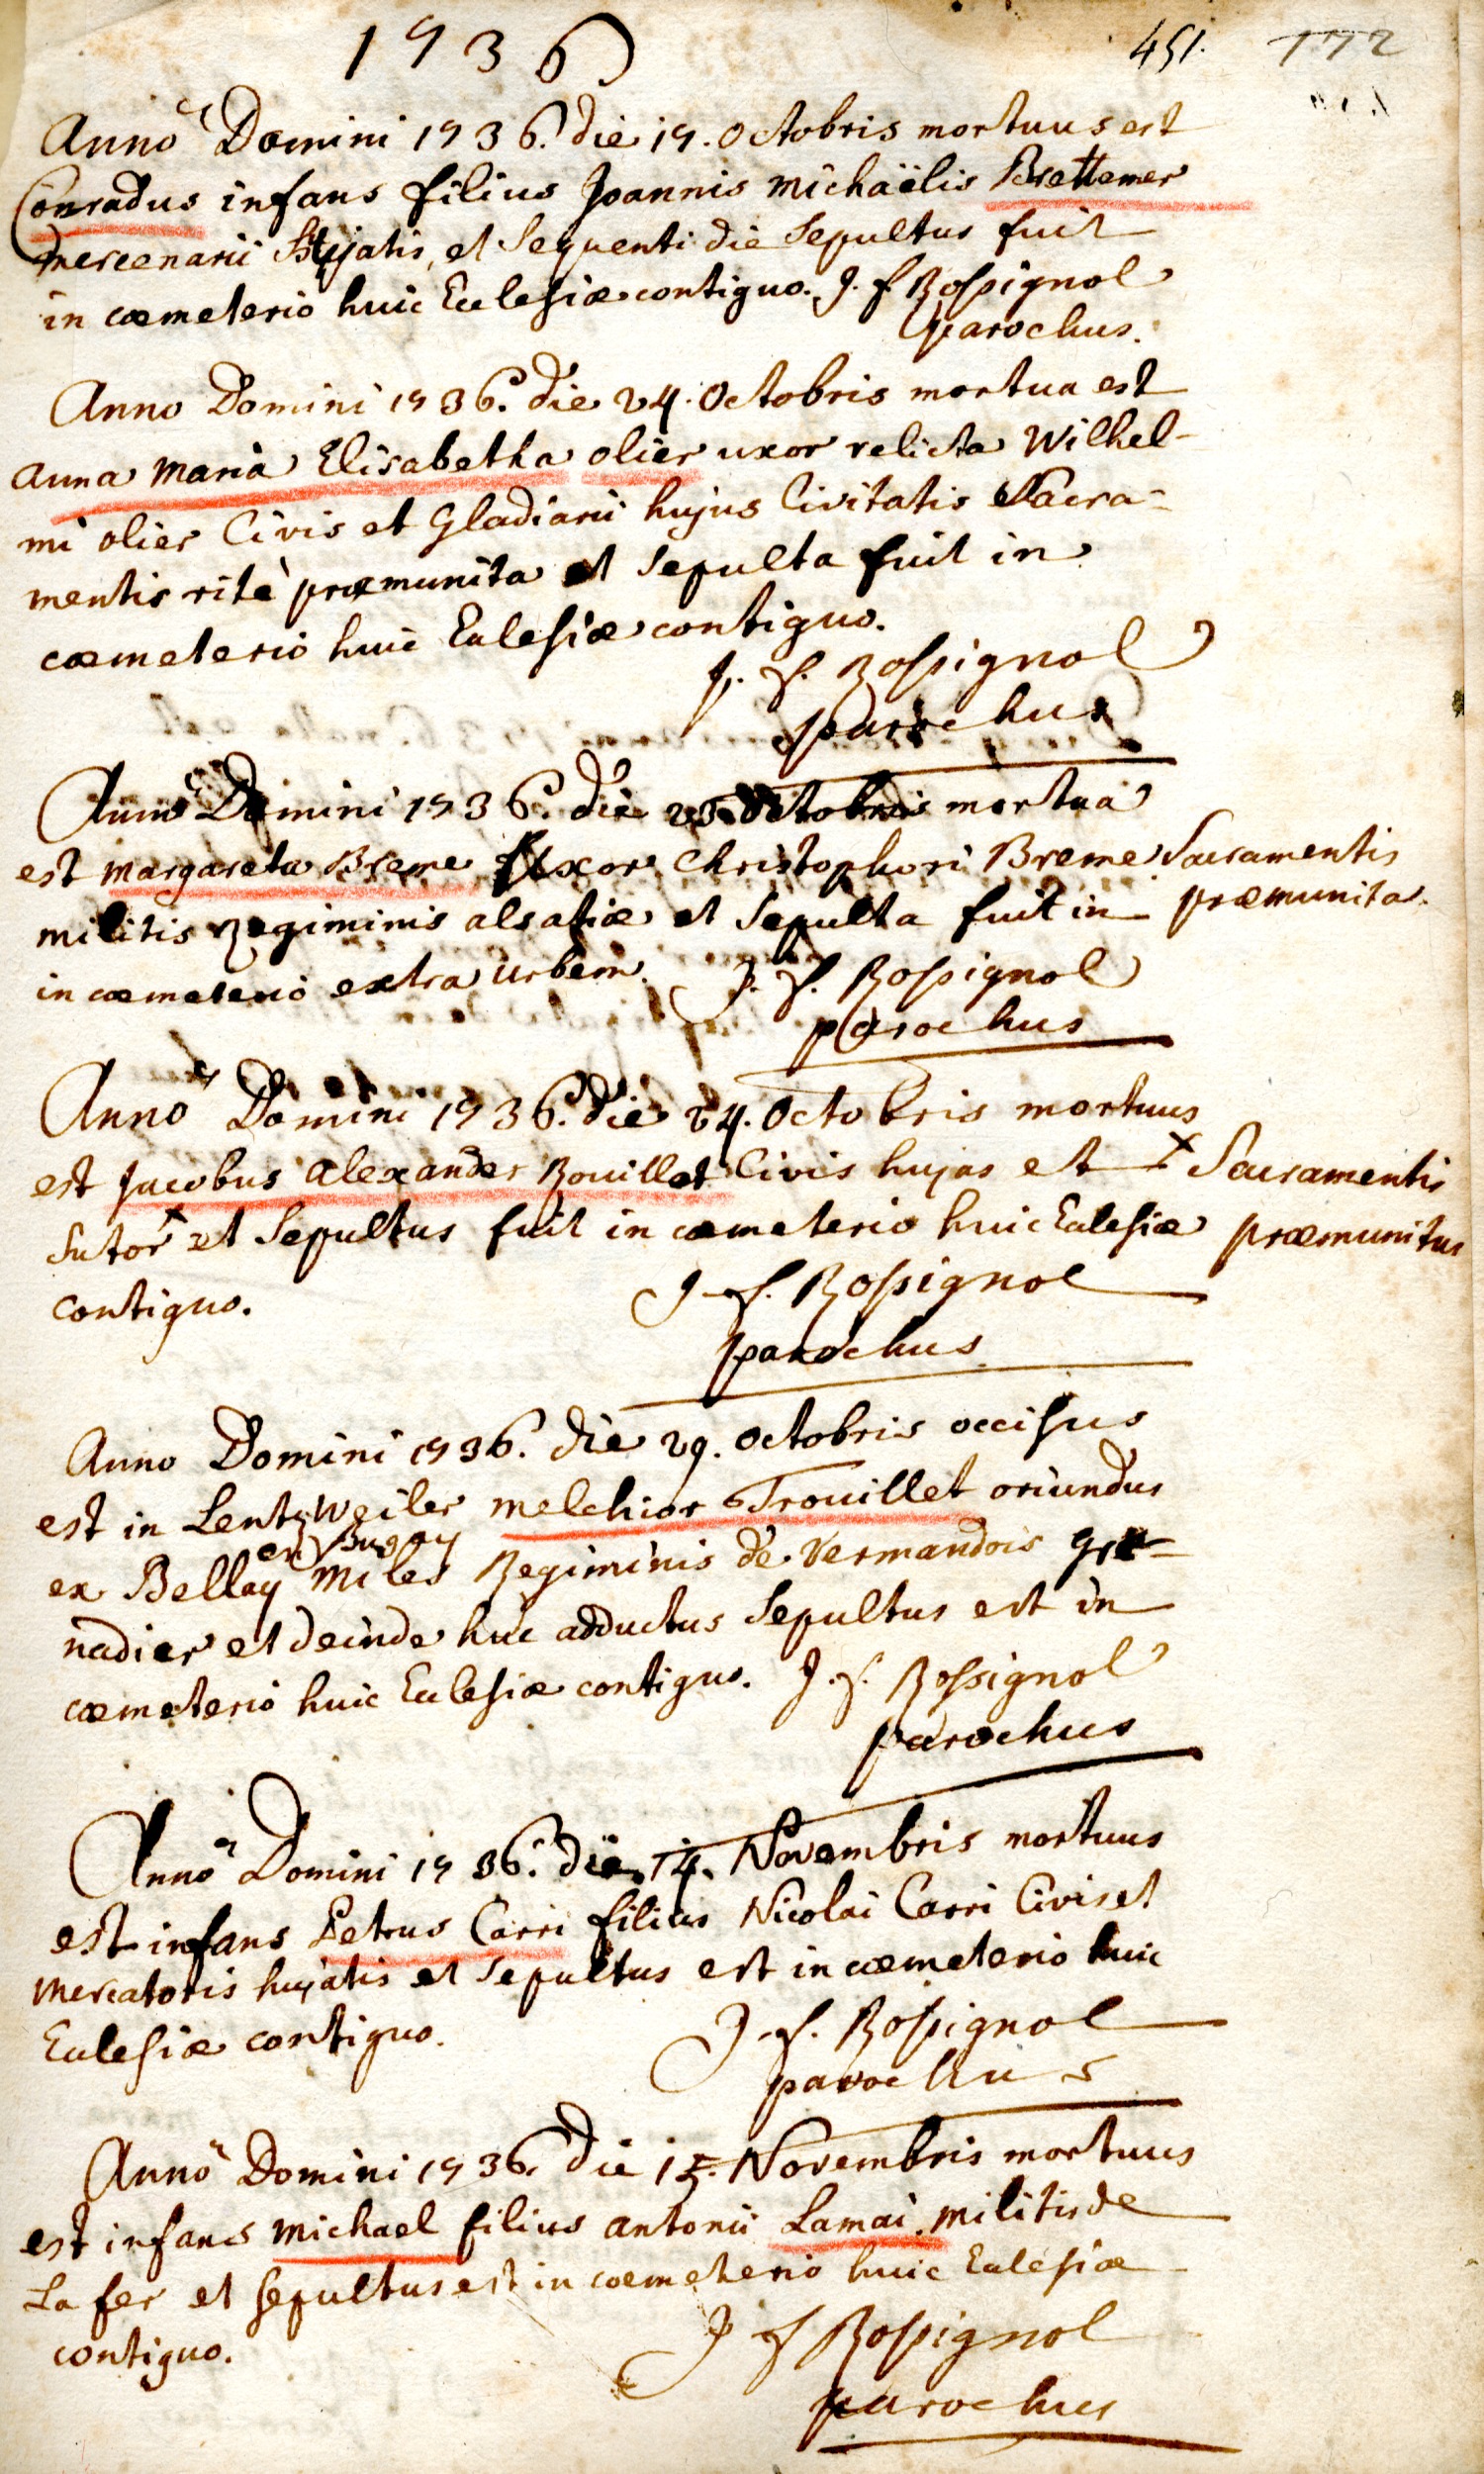 1736
451. 172
Anno Domini 1736. die 17. Octobris mortuus est
Conradus infans filius Joannis Michaëlis Brettemer
mercenarii hujatis, et sequenti die sepultus fuit
in cœmeterio huic Ecclesiæ contiguo. J. f Rossignol
parochus.
Anno Domini 1736. die 24. Octobris mortua est
Anna Maria Elisabetha olier uxor relicta Wilhel-
mi olier Civis et Gladiarii hujus Civitatis Sacra-
mentis ritè præmunita et sepulta fuit in
cœmeterio huic Eclesiæ contiguo.
J. f. Rossignol
parochus
Anno Domini 1736. die Octobris mortua
est Margareta Breme uxor Christophori Breme Sacramentis
militis Regiminis alsatiæ et sepulta fuit in præmunita.
in cœmeterio extra urbem. J. f. Rossignol
parochus
Anno Domini 1736. die 24. Octobris mortuus
est Jacobus Alexander Rouillet Civis hujas et x Sacramentis
sutor x et sepultus fuit in cœmeterio huic Eclesiæ præmunitus
contiguo. J. f. Rossignol
parochus
Anno Domini 1736. die 29. Octobris occisus
est in Lentzweiler Melchior Trouillet oriundus
en Bugay
ex Bellay Miles Regiminis de Vermandois gre-
nadier et deinde huc adductus sepultus est in
cœmeterio huic Eclesiæ contiguo. J. f. Rossignol
parochus
Anno Domini 1736. die 14. Novembris mortuus
est infans Petrus Carri filius Nicolai Carri Civis et
Mercatoris hujatis et sepultus est in cœmeterio huic
Eclesiæ contiguo. J. f. Rossignol
parochus
Anno Domini 1736. die 15. Novembris mortuus
est infans Michael filius Antonii Lamai. militis de
La fer et sepultus est in cœmeterio huic Eclesiæ
contiguo. J f Rossignol
parochus